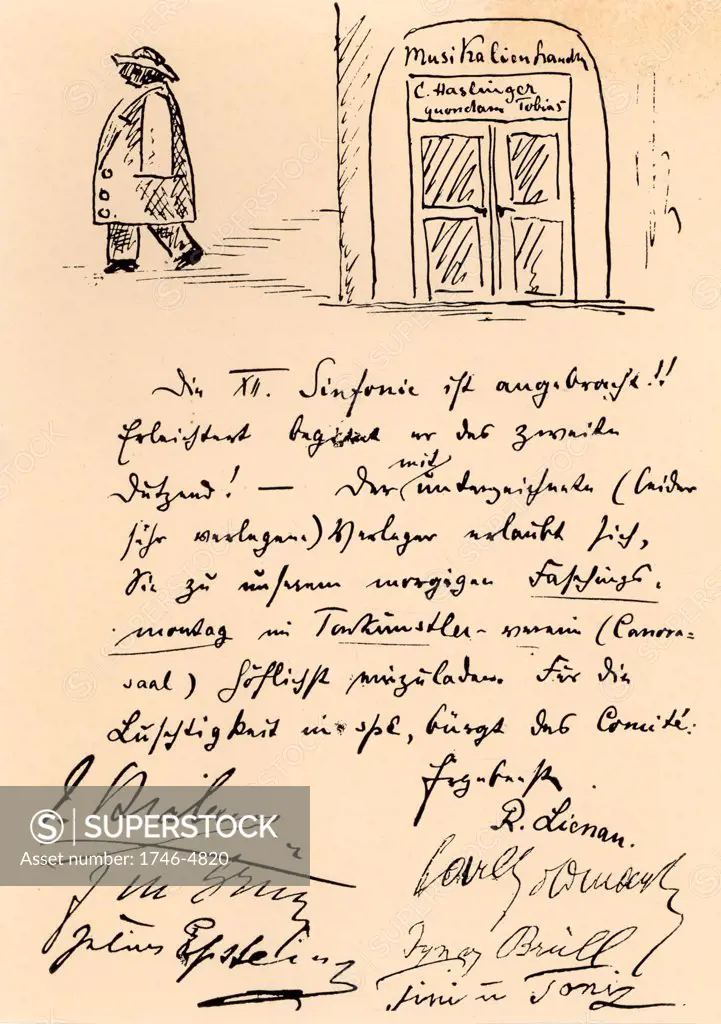 Musikalienhandlg
C. Haslinger
quondam Tobias
Die XII. Sinfonie ist angebracht!!
Erleichtert beginnt er das zweite
Dutzend! — Der mitunterzeichnete (leider
sehr verlegene) Verleger erlaubt sich,
Sie zu unserem morgigen Faschings-
montag im Tonkünstler-verein (Canova-
saal) höflichst einzuladen. Für die
Luschtigkeit in spe, bürgt das Comité:
Ergebenst
R. Lienau.
Carl Goldmark
Julius Epstein
Ignaz Brüll
SUPERSTOCK
Asset number: 1746-4820